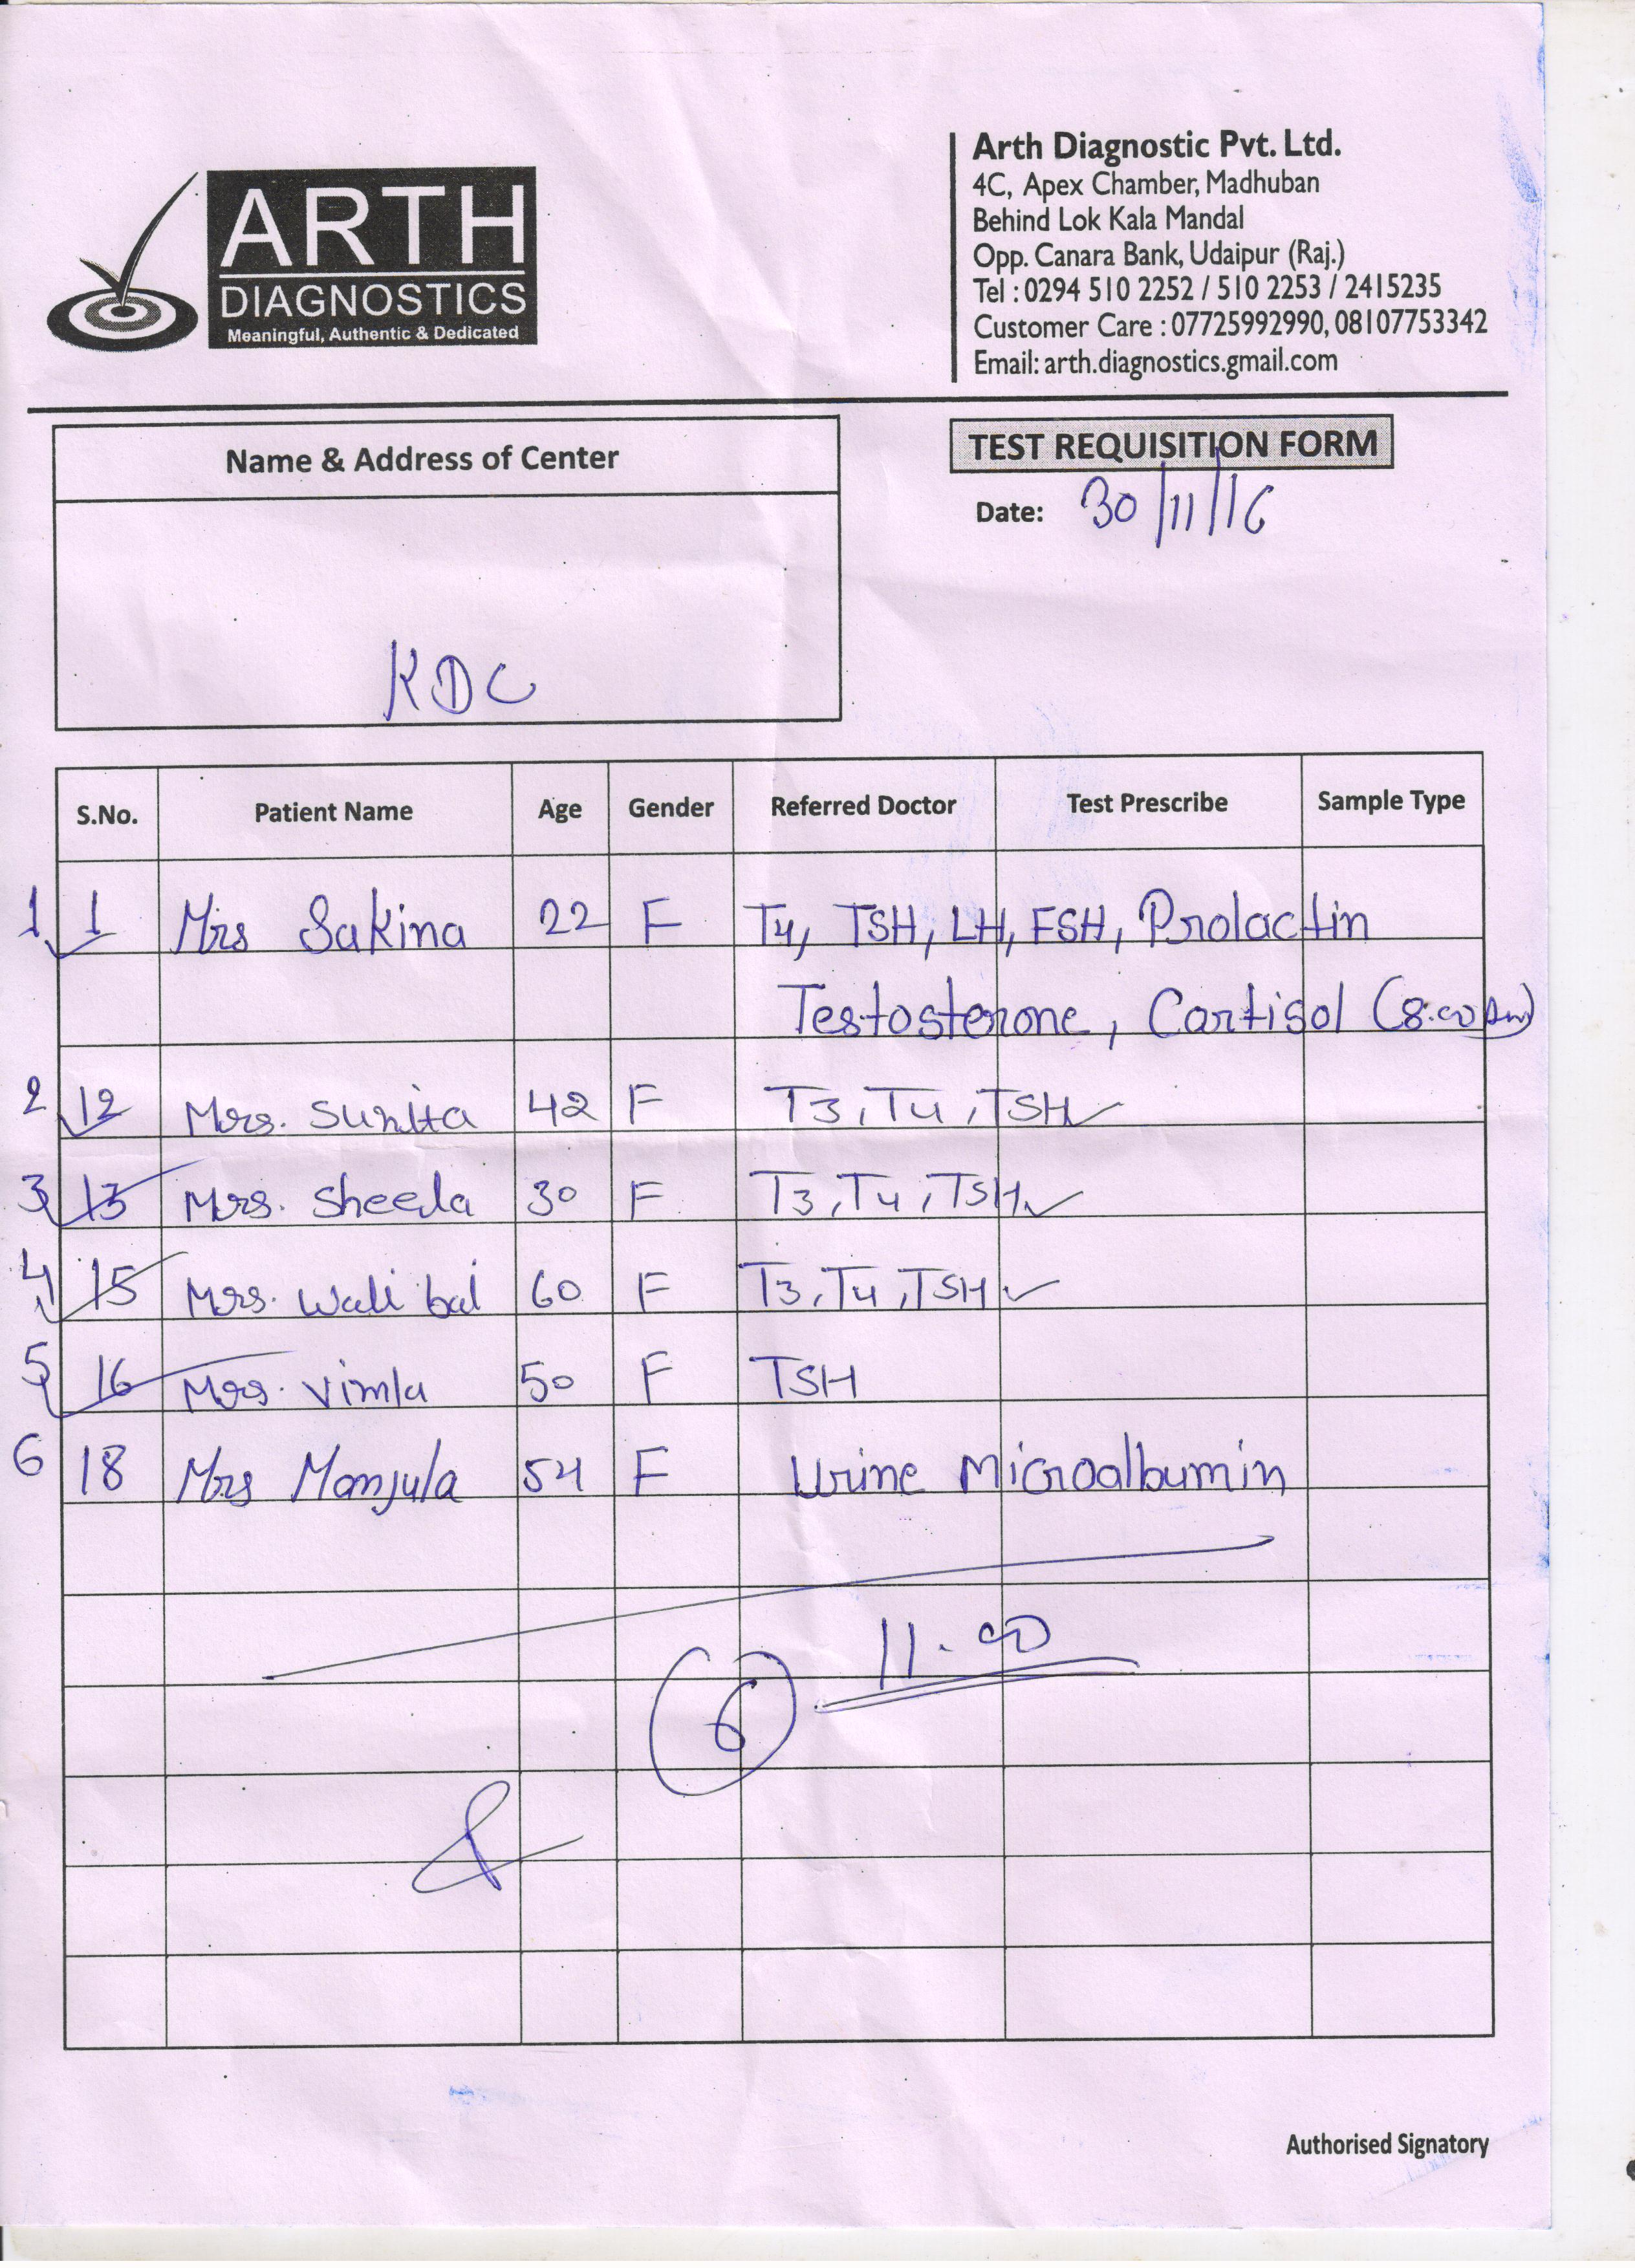 ARTH
DIAGNOSTICS
Meaningful, Authentic & Dedicated
Arth Diagnostic Pvt. Ltd.
4C, Apex Chamber, Madhuban
Behind Lok Kala Mandal
Opp. Canara Bank, Udaipur (Raj.)
Tel : 0294 510 2252 / 510 2253 / 2415235
Customer Care : 07725992990, 08107753342
Email: arth.diagnostics.gmail.com
Name & Address of Center
KDC
TEST REQUISITION FORM
Date: 30/11/16
S.No. Patient Name Age Gender Referred Doctor Test Prescribe Sample Type
1 1 Mrs Sakina 22 F T4, TSH, LH, FSH, Prolactin
Testosterone, Cortisol (8.00 Am)
2 12 Mrs. Sunita 42 F T3, T4, TSH
3 13 Mrs. Sheela 30 F T3, T4, TSH
4 15 Mrs. Wali bai 60 F T3, T4, TSH
5 16 Mrs. Vimla 50 F TSH
6 18 Mrs Manjula 54 F Urine Microalbumin
11.00
6
Authorised Signatory